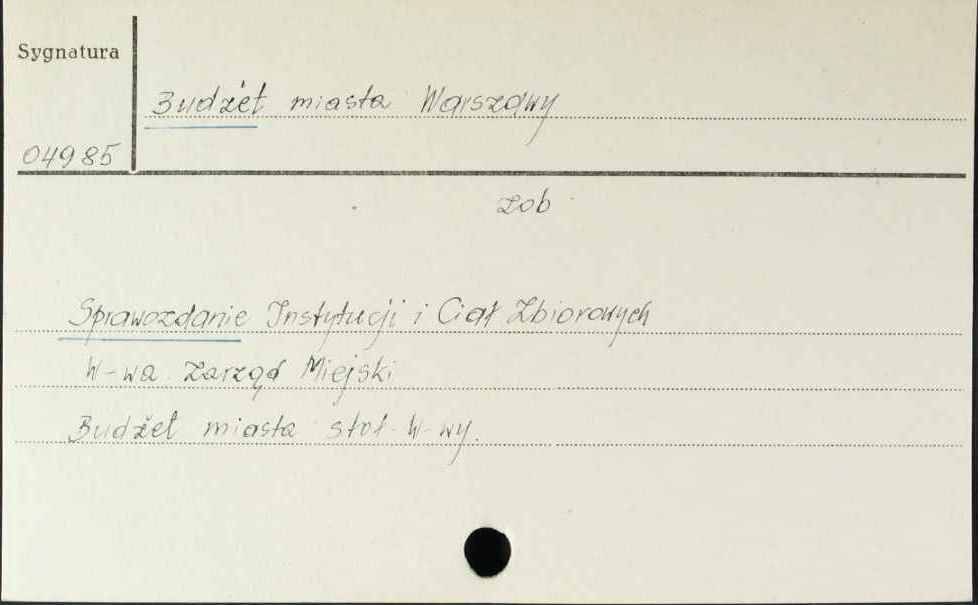 Sygnatura
Budżet miasta Warszawy
04985
zob
Sprawozdanie Instytucji i Ciał Zbiorowych
W-wa Zarząd Miejski
Budżet miasta stoł. W-wy.